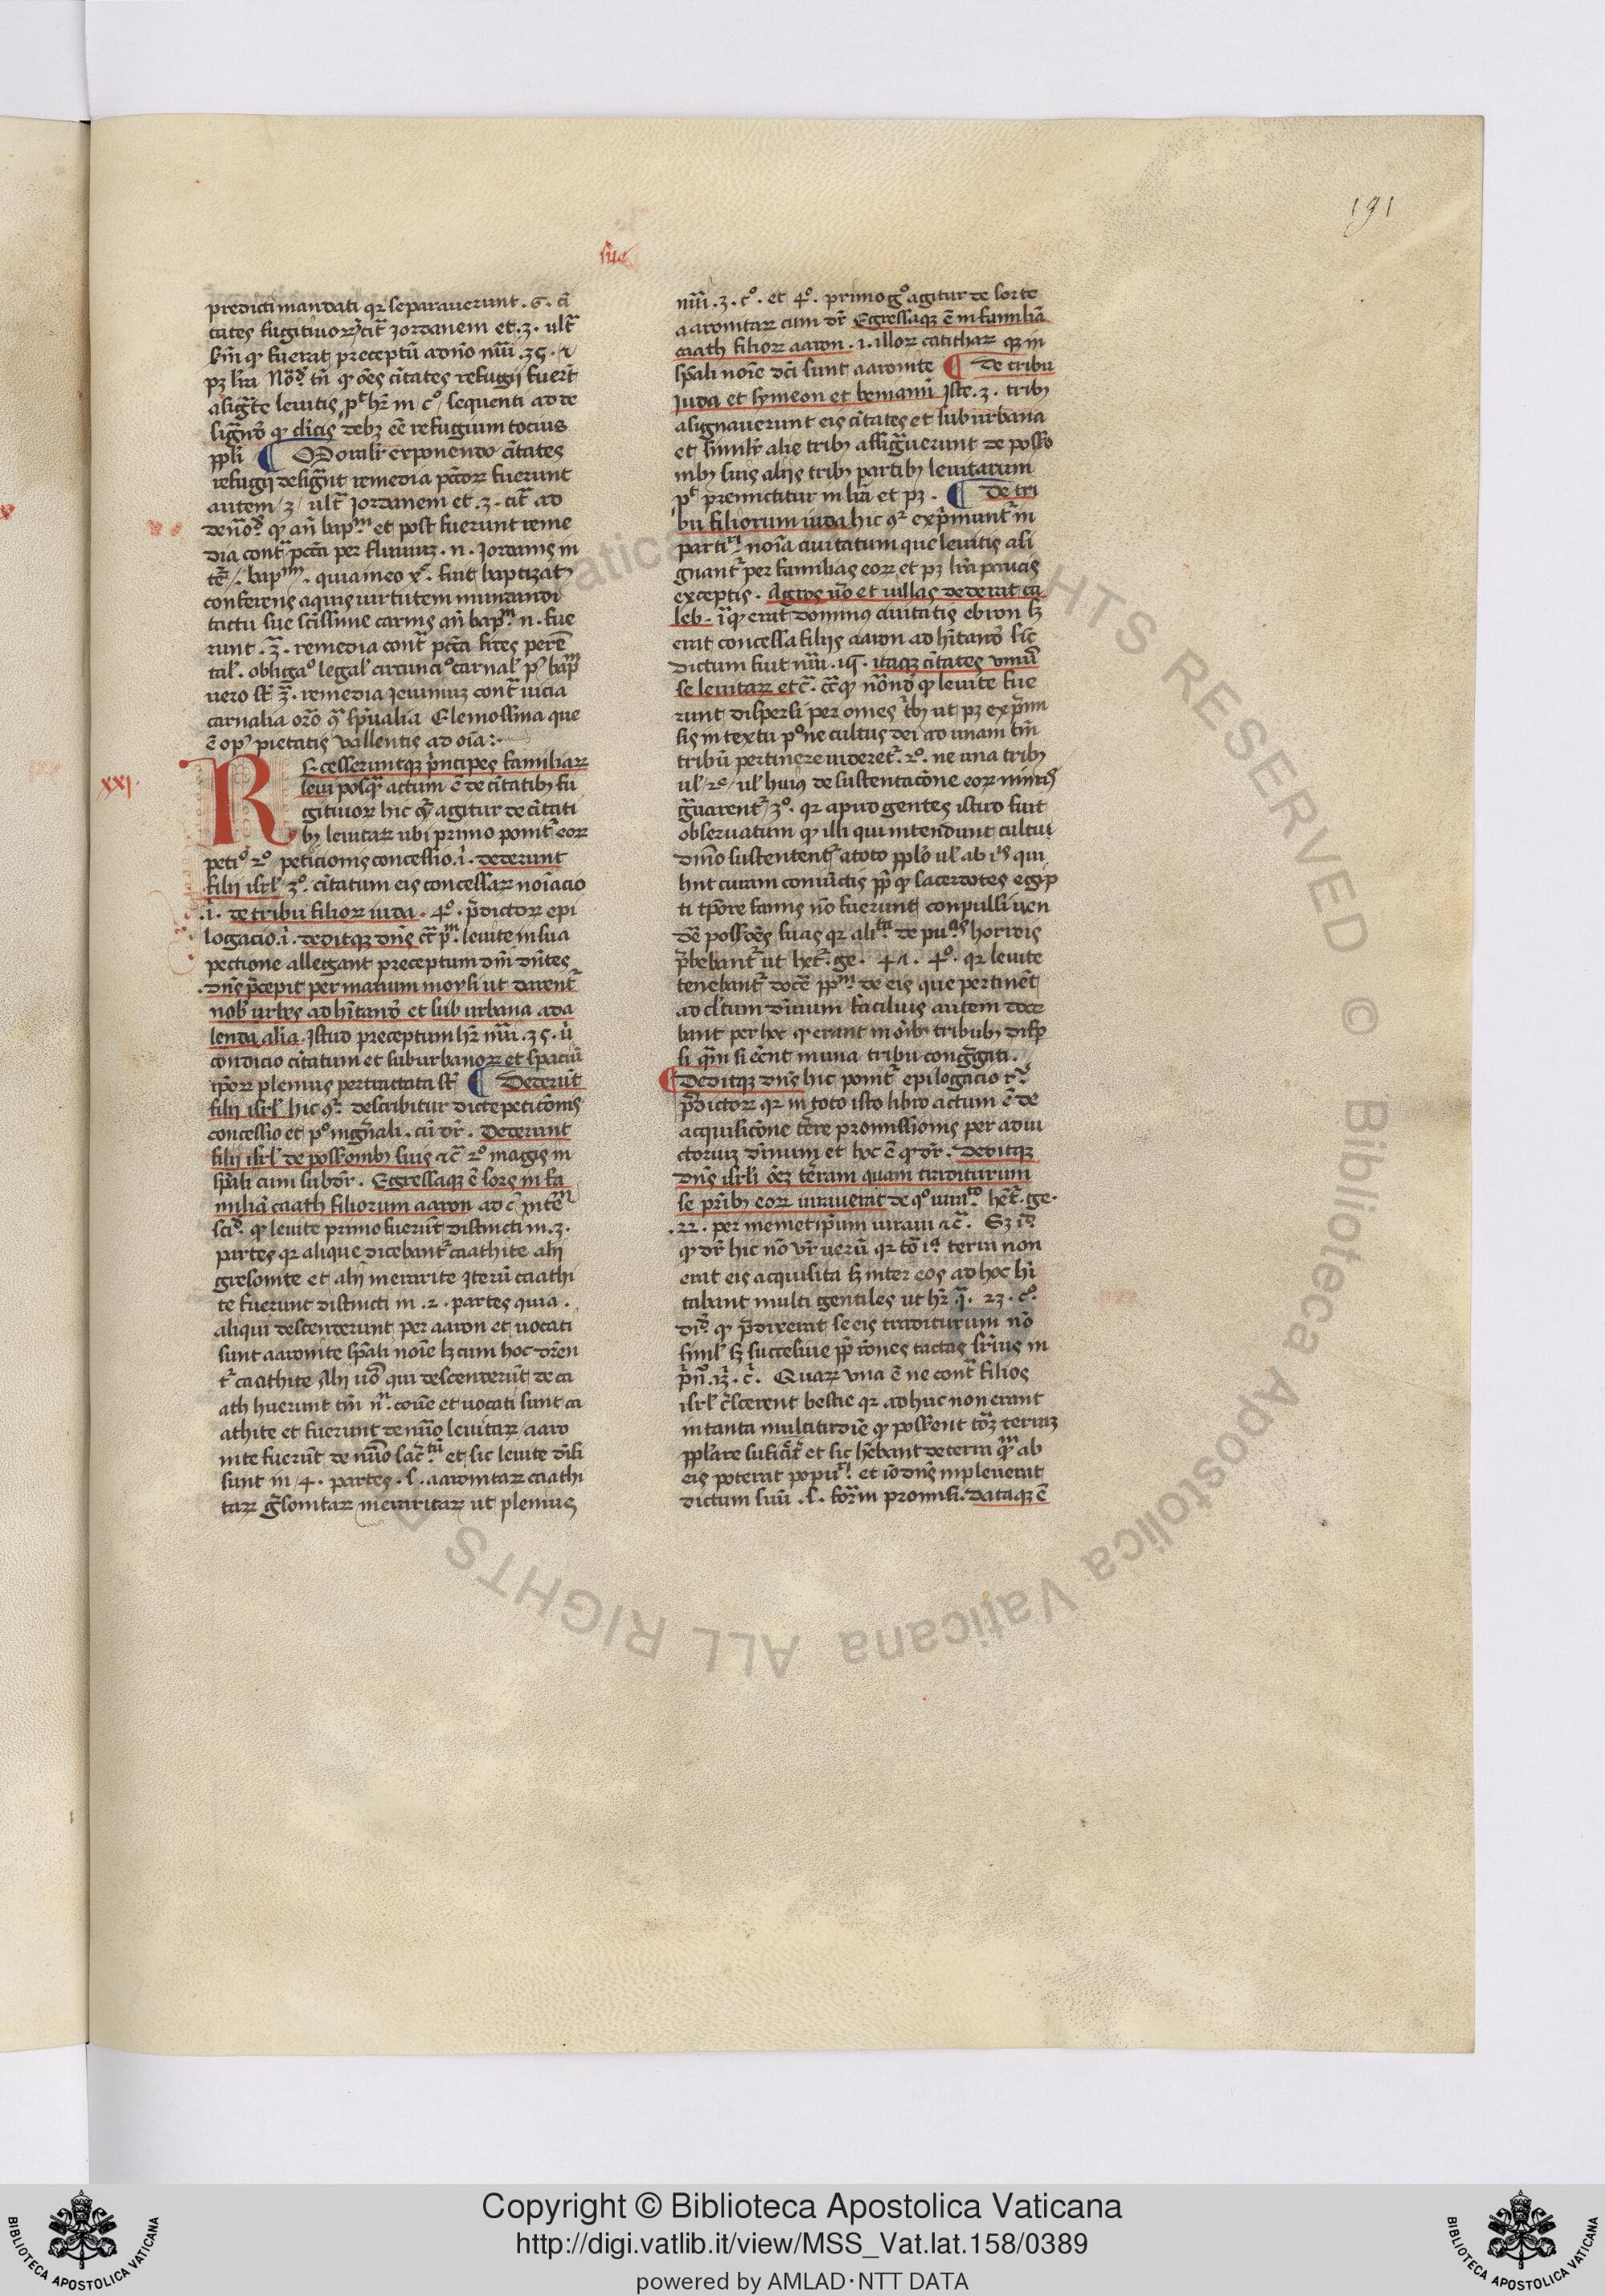 191
sue
predicti mandati qꝛ separauerunt .6. ci
tates fugitiuoꝝ citᷓ Jordanem et .3. ultᷓ
km̄ qͥ fuerat preceptū a dn̄o nūi .35. ꞇ
pꝫ lr̄a Noᵒ tn̄ qͥ oēs ciuitates refugij fuer̄t
asigͣte leuitis pᵗ hr̄ in cͦ sequenti ad de
signᵒ qͥ clicis debꝫ eē refugium tocius
ppl̄i ¶ Moralr̄ exponendo citates
refugij designt remedia pctoꝝ fuerunt
autem /3/ ultᷓ Jordanem et .3. citᷓ ad
denoᵒ qͥ an̄ bapᵐ et post fuerunt reme
dia contᷓ pctā per fluuiuꝫ .n. Jordanis in
bapᵐ. quia in eo xͨ. fuit baptizatꝰ
conferens aquis uirtutem mundandi
tactu sue sctissime carnis an̄ bapᵐ .n. fue
runt .3ᷓ. remedia contᷓ pctā
tal̄. obligaᵒ legal̄ circunciᵒ carnal̄ pᵒ bapᵐ
uero st̄ 3ᷓ. remedia Jeiuniuꝫ contᷓ uicia
carnalia orō qᷓ spūalia Elemosina que
ē opꝰ pietatis uallentis ad oīa:
xxi.
R cesseruntqꝫ pͥncipes familiaꝝ
leui posqᷓ actum ē de citatibꝰ fu
gitiuoꝝ hic qᷓ agitur de citati
bꝰ leuitaꝝ ubi primo ponitᷣ eoꝝ
petiᵒ 2ᵒ peticionis concessio .i. dederunt
filij isrl̄ 3ᵒ. citatum eis concessaꝝ noīacio
.i. de tribu filioꝝ iuda. 4ᵒ. pᷓdictoꝝ epi
logacio .i. deditqꝫ dn̄s ꞇc̄ pᵐ. leuite in sua
pectione allegant preceptum dn̄i dn̄tes
dn̄s pᷓcepit per manum moysi ut darentᷣ
nob̄ urbes ad hītandᵒ et suburbana ad a
lenda alia. Istud preceptum hr̄ nūi .35. ū
condicio citatum et suburbanoꝝ et spaciū
ip̄oꝝ plenius pertractata st̄ ¶ Dederūt
filij isrl̄ hic qᷣ describitur dicte peticōnis
concessio et pᵒ in gn̄ali. cū dr̄. Dederunt
filij isrl̄ de possōnibꝰ suis ꞇc̄ 2ᵒ magis in
sp̄ali cum subdr̄. Egressaqꝫ ē sors in fa
miliā caath filiorum aaron ad cͥ
sciᵒ. qͥ leuite primo fuerūt distincti in .3.
partes qꝛ alique dicebantᷣ caathite alij
gresonite et alij merarite Jterū caathi
te fuerunt distincti in .2. partes quia.
aliqui descenderunt per aaron et uocati
sunt aaronite sp̄ali noīe lꝫ cum hoc dr̄en
tᷣ caathite Alij uᵒ qui descenderūt de ca
ath huerunt tm̄ nⁿ. coūe et uocati sunt ca
athite et fuerunt de nūo leuitaꝝ aaro
nite fuerūt de nūo sacᵗᵘ et sic leuite diūsi
sunt in /4. partes .s. aaronitaꝝ caathi
taꝝ gᷓsonitaꝝ meraritaꝝ ut plenius
nūi .3. cᵒ. et 4ᵒ. primo gᵒ agitur de sorte
aaronitaꝝ cum dr̄ Egressaqꝫ ē in familiā
caath filioꝝ aaron .i. illoꝝ catithaꝝ qꝫ in
sp̄ali noīe dc̄i sunt aaronite ¶ De tribu
Juda et symeon et beniamī Iste .3. tribꝰ
asignauerunt eis citates et suburbana
et similr̄ alie tribꝰ assigᷓuerunt de posso
nibꝰ suis alijs tribꝰ partibꝰ leuitarum
pᵗ premictitur in lr̄a et pꝫ. ¶ De tri
bu filiorum iuda hic qᷣ exprimuntᷣ in
partiʳⁱ noīa ciuitatum que leuitis asi
gnantᷣ per familias eoꝝ et pꝫ lr̄a paucis
exceptis. Agros uō et uillas dederat ca
leb. īqͥ erat dominus ciuitatis ebron sꝫ
erat concessa filijs aaron ad hītandᵒ sic̄
dictum fuit nūi. itaqꝫ citates uniū
se leuitaꝝ etc̄. nōndᵒ qͥ leuite fue
runt dispersi per omes tᷣbꝰ ut pꝫ ex pᷓmi
sis in textu pᵒ ne cultus dei ad unam tm̄
tribū pertinere uideretᷣ. 2ᵒ. ne una tribꝰ
ul̄ /2ᵉ/ ul̄ huiꝰ de sustentacōne eoꝝ nimis
gᷓuarentᷣ /3ᵒ. qꝛ apud gentes istud fuit
obseruatum qͥ illi qui intendunt cultui
diuīo sustententᷣ a toto ppl̄o ul̄ ab iⁱˢ qui
hn̄t curam conuictis pp̄ qͥ sacerdotes egip
ti tpōre famis nō fuerunt conpulli uen
dē possōēs suas qꝛ aliᵗᵃ de puᶜⁱˢ horreis
pᷓbebantᷣ ut hetᷣ. ge. 47. 4ᵒ. qꝛ leuite
tenebantᷣ docē ppᵐ de eis que pertinēt
ad cl̄tum diuinum facilius autem doce
bant per hoc qͥ erant in oībꝰ tribubꝰ disp̄
si qᷓm si eēnt in una tribu congᷓgati.
¶ Deditqꝫ dn̄s hic ponitᷣ epilogacio
pᷓdictoꝝ qꝛ in toto isto libro actum ē de
acquisicōne terre promissionis per adiu
ctoriuꝫ diuinum et hoc ē qͥ dr̄. Deditqꝫ
dn̄s isrl̄i oēꝫ terram quam traditurum
se prībꝰ eoꝝ iurauerat de qᵒ iuraᵗᵒ hetᷣ. ge.
.22. per memetip̄um iuraui ꞇc̄. Sꝫ iᵒ.
qͥ dr̄ hic nō ur̄ uerū qꝛ tō iᵃ terra non
erat eis acquisita sꝫ inter eos ad hoc hī
tabant multi gentiles ut hr̄ .23. cᵒ.
diᵒ. qͥ pᷓdixerat se eis traditurum nō
simul sꝫ succesiue pp̄ rōnes tactas sr̄ius in
pᷓnᵒ. Quaꝝ una ē ne contᷓ filios
isrl̄ cᷓscerent bestie qꝛ adhuc non erant
in tanta multitudīe qͥ possent totā terraꝫ
ppl̄are et sic hēbant de terra qᵐ ab
eis poterat popuʳⁱ et iō dn̄s inpleuerat
dictum suū .s. promisi. Dataqꝫ ē
Copyright © Biblioteca Apostolica Vaticana
http://digi.vatlib.it/view/MSS_Vat.lat.158/0389
powered by AMLAD·NTT DATA
BIBLIOTECA APOSTOLICA VATICANA
BIBLIOTECA APOSTOLICA VATICANA